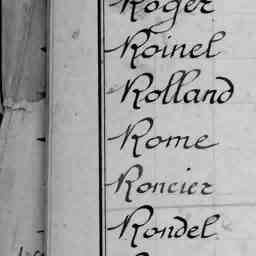 Roger
Roinel
Rolland
Rome
Roncier
Rondel